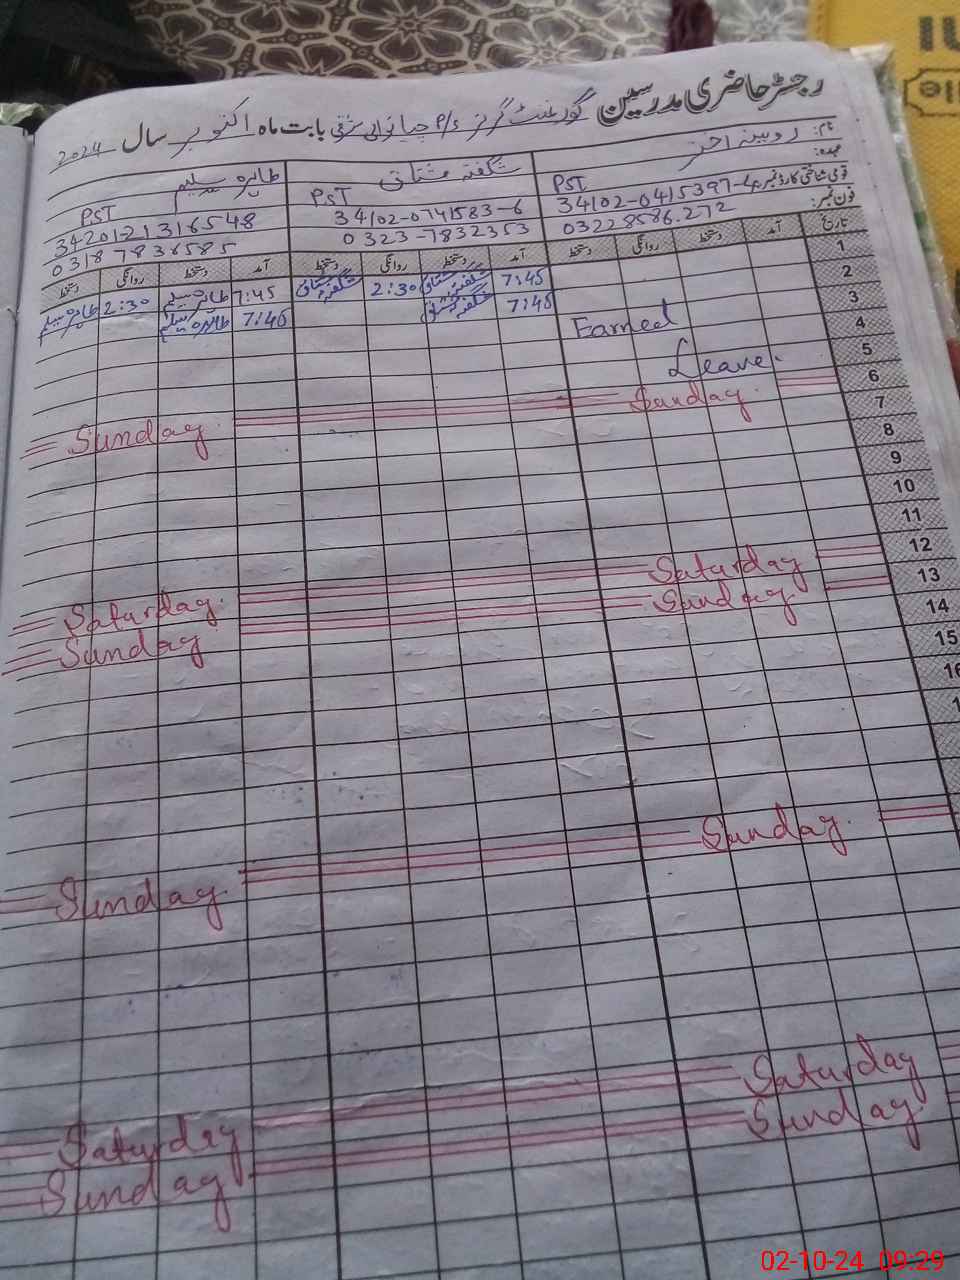 رجسٹر حاضری مدرسین گورنمنٹ گرلز P/S بابت ماہ اکتوبر سال 2024
نام: روبینہ اختر
شگفتہ مشتاق
طاہرہ سلیم
عہدہ: PST
PST
PST
قومی شناختی کارڈ نمبر: 34102-0415397-4
34102-0741583-6
34201-21316548
فون نمبر: 03228586272
0323-7832353
03187836585
تاریخ آمد دستخط روانگی دستخط آمد دستخط روانگی دستخط آمد دستخط روانگی دستخط
1 7:45 شگفتہ مشتاق 2:30 شگفتہ مشتاق 7:45 طاہرہ سلیم 2:30 طاہرہ سلیم
2 7:45 شگفتہ مشتاق 7:45 طاہرہ سلیم
3 Earned
4
5 Leave.
6 Sunday. Sunday.
7
8
9
10
11
12 Saturday Saturday.
13 Sunday. Sunday
14
15
16
1
Sunday. Sunday
Saturday Saturday
Sunday Sunday
IUI
ile
02-10-24 09:29